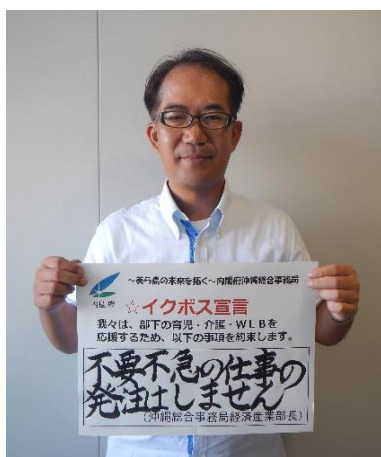 ～美ら島の未来を拓く～内閣府沖縄総合事務局
内閣府
☆イクボス宣言
我々は、部下の育児・介護・WLBを
応援するため、以下の事項を約束します。
不要不急の仕事の
発注はしません
(沖縄総合事務局経済産業部長)